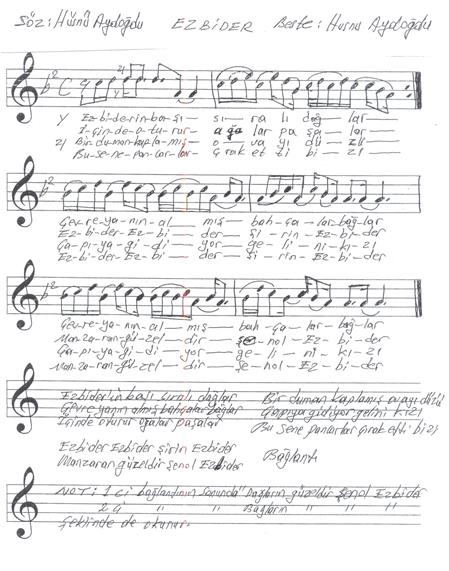 Söz: Hüsnü Aydoğdu EZBİDER Beste: Hüsnü Aydoğdu
Ez bi de rin ba - şı — sı — ra lı dağ — lar —
İ - çin de - o - tu - rur — ağa — lar pa şa — lar —
2) Bir du man kap la - mış — o — va yı dü — zü —
Bu - se - ne - pan - car - lar — çı rak et ti bi — zi
Çev - re - ya - nın - al — mış — bah - ça — lar - bağ - lar
Ez - bi - der - Ez - bi — der — şi - rin - Ez - bi - der
Ga - pı - ya - gi - di — yor — ge - li — ni - kı - zı
Ez - bi - der - Ez - bi — der — şi - rin - Ez - bi - der
Çev - re - ya - nın - al — mış — bah - ça — lar - bağ - lar
Man - za - ran - gü - zel — dir — şe - nol - Ez - bi - der
Ga - pı - ya - gi - di — yor — ge - li — ni — kı - zı
Man - za - ran - gü - zel — dir — şe - nol - Ez - bi - der
Ezbiderin başı sıralı dağlar Bir duman kaplamış ovayı düzü
Çevre yanın almış bahçalar bağlar Gapıya gidiyor gelini kızı
İçinde oturur ağalar paşalar Bu sene pancarlar çırak etti bizi
Ezbider Ezbider şirin Ezbider
Manzaran güzeldir şenol Ezbider Bağlantı
NOT: 1 ci bağlantının sonunda "Dağların güzeldir şenol Ezbider
2 ci " " Bağların " " "
Şeklinde de okunur.